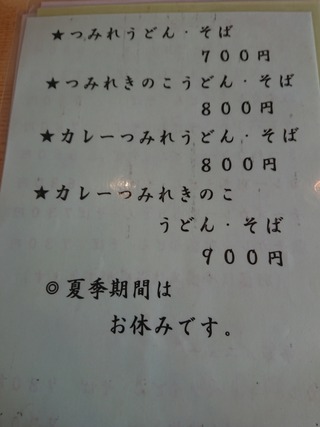 ★つみれうどん・そば
７００円
★つみれきのこうどん・そば
８００円
★カレーつみれうどん・そば
８００円
★カレーつみれきのこ
うどん・そば
９００円
◎夏季期間は
お休みです。